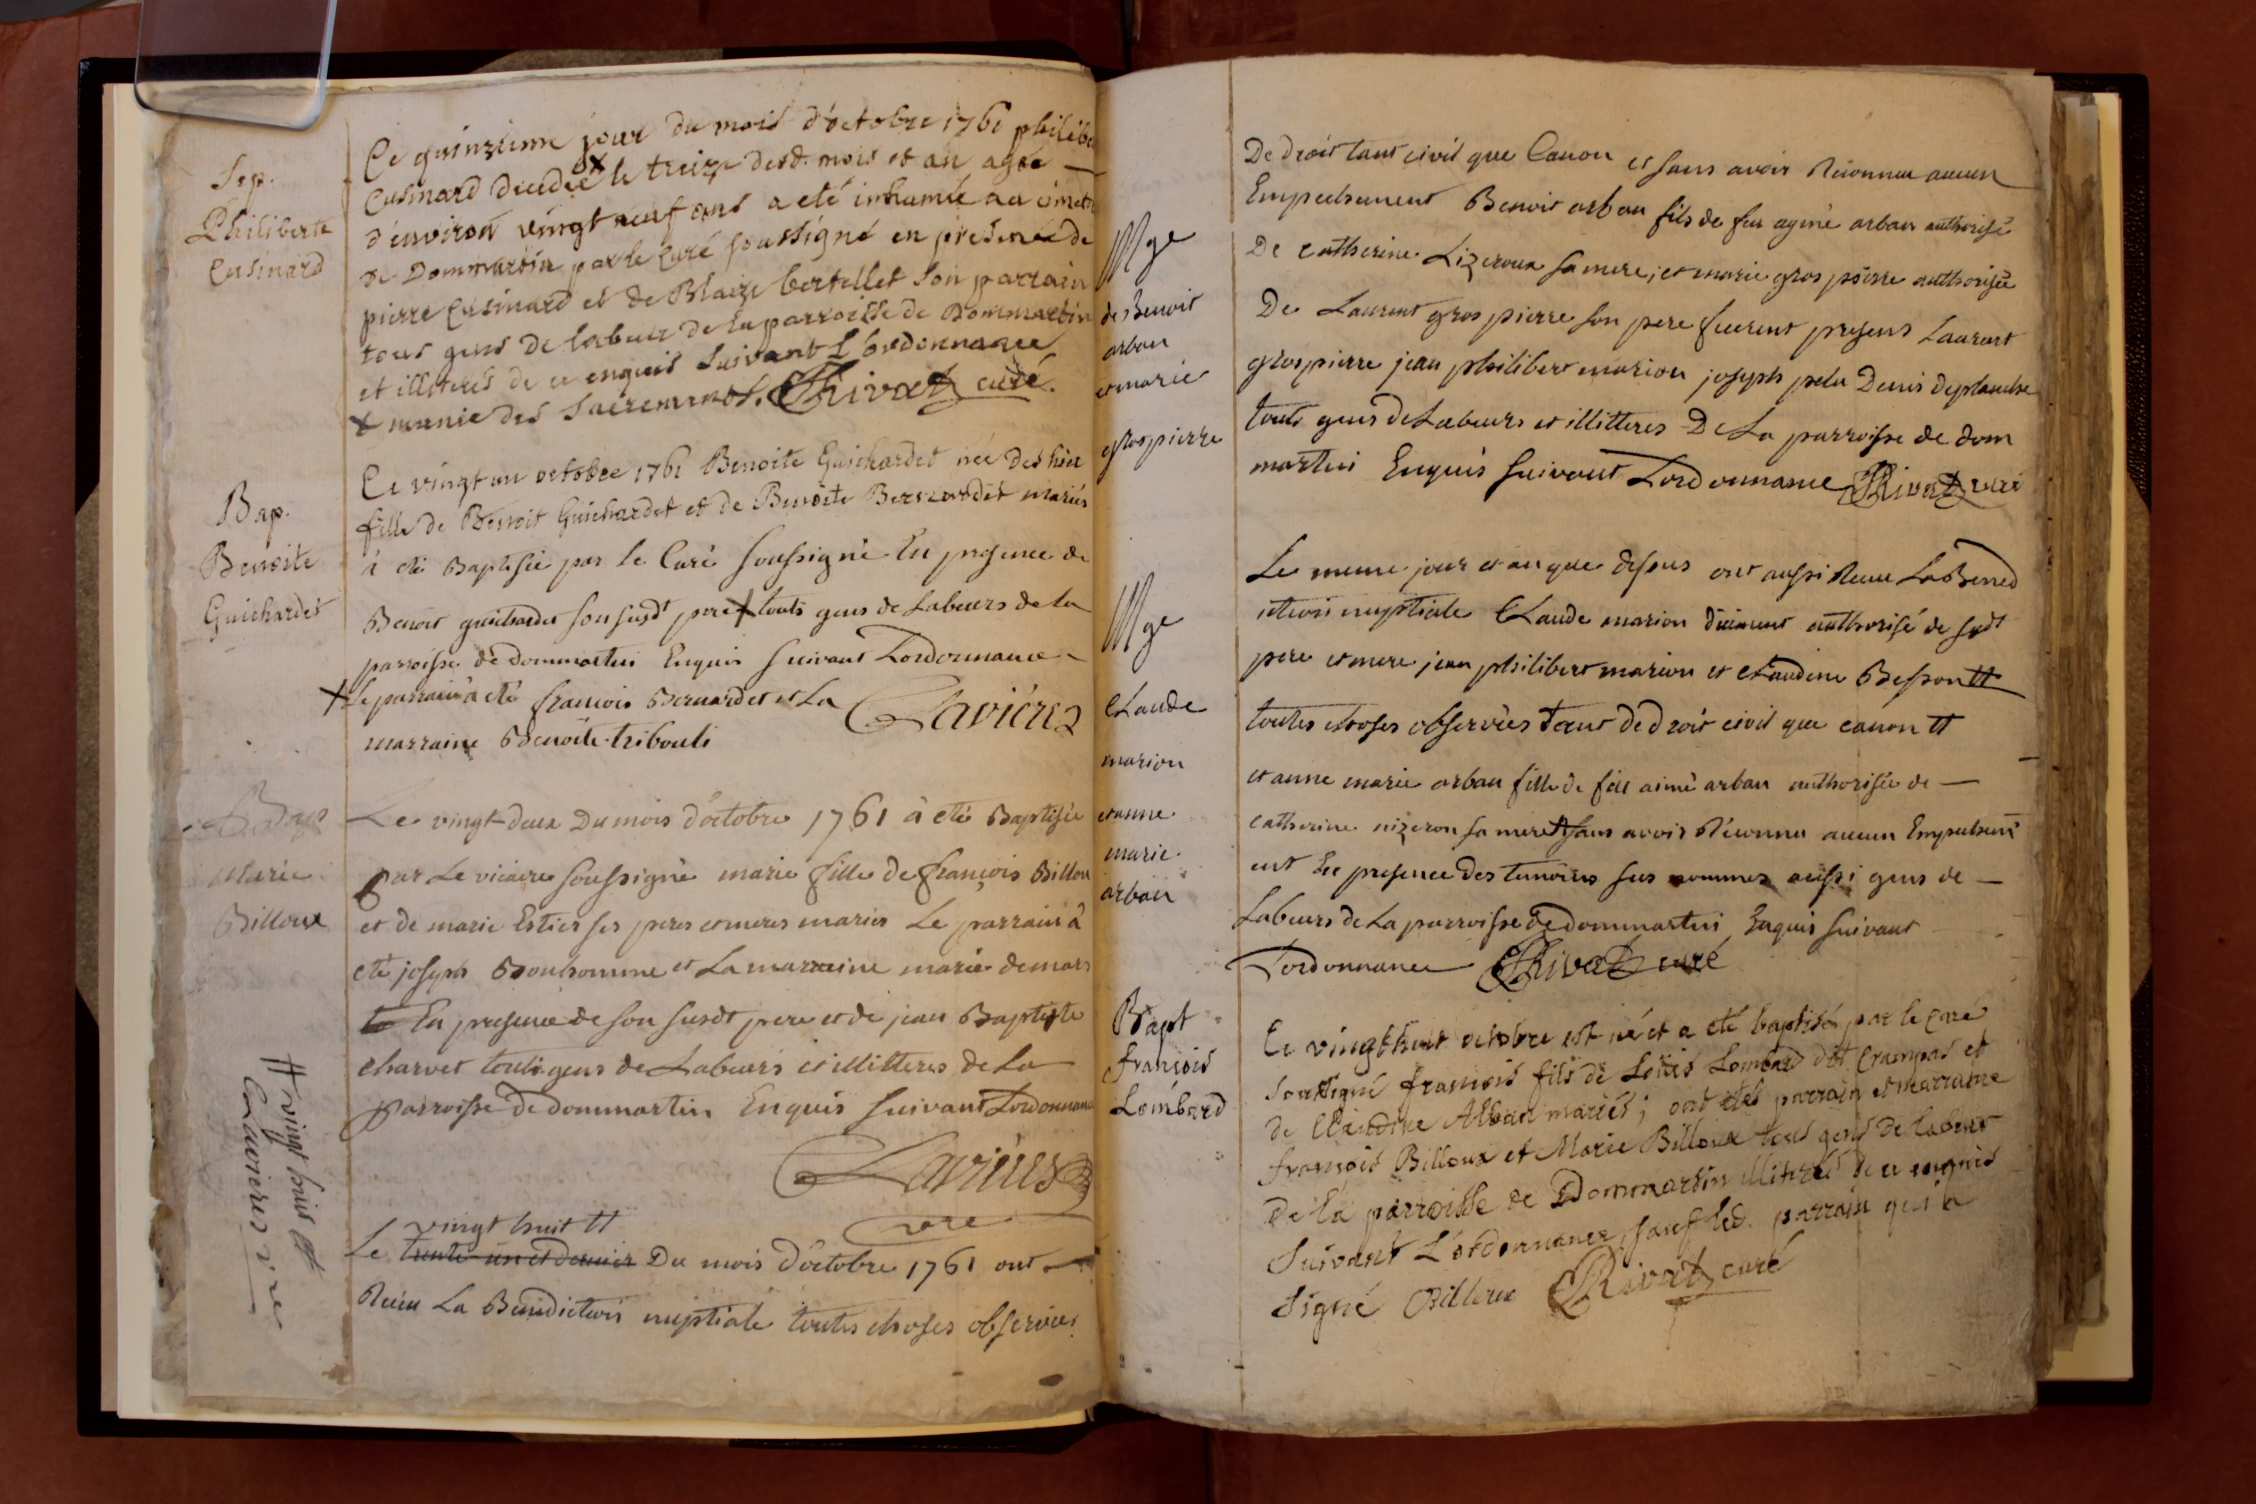 Sep.
Philiberte
Cusinard
Ce quinzieme jour du mois d'octobre 1761 philibe
Cusinard decedée X le treize desd. mois et an agée
d'environ vingt neuf ans a eté inhumée au cimet
de Dommartin par le Curé soussigné en presence de
pierre Cusinard et de Blaize bertellet son parrain
tous gens de labeur de la parroisse de Dommartin
et illiterés de ce enquis suivant L'ordonnance
X munie des Sacremens. Rivat curé.
Bap.
Benoite
Guichardet
Ce vingt un octobre 1761 Benoite Guichardet née des hier
fille de Benoit Guichardet et de Benoite Bernardet mariés
à eté Baptisée par le Curé soussigné En presence de
Benoit guichardet son susdt pere + touts gens de Labeurs de la
parroisse de dommartin Enquis suivant Lordonnance
+ le parrain à eté francois Bernardet et La
marraine Benoite tribouli
Lavieres
Bap
Marie
Billoux
Le vingt-deux Du mois d'octobre 1761 à eté Baptisée
par Le vicaire soussigné marie fille de françois Billou
et de marie Estier ses peres et meres mariés Le parrain à
eté joseph Bonhomme et La marraine marie demar
te En presence de son susdt pere et de jean Baptiste
charvet touts gens de Labeurs et illitteres de La
parroisse de dommartin Enquis suivant Lordonnance
Lavieres
vre
# vingt huit #
Lavieres vre
vingt huit #
Le trente un et dernier Du mois d'octobre 1761 ont
Recu La Benediction nuptiale toutes choses observées
Mge
de Benoit
arban
et marie
grospierre
De droit tant civil que Canon et sans avoir Reconnu aucun
Empechement Benoit arban fils de feu aymé arban authorisé
De catherine Lizeroux sa mere, et marie gros pierre authorisée
De Laurent gros pierre son pere furent presens Laurent
grospierre jean philibert marion joseph pelu Denis deplanche
touts gens de Labeurs et illitteres De La parroisse de dom
martin Enquis suivant Lordonnance Rivat curé
Mge
Claude
marion
et anne
marie
arban
Le meme jour et an que dessus ont aussi Recu La Bened
iction nuptiale Claude marion duement authorisé de sesdt
pere et mere jean philibert marion et Claudine Besson #
toutes choses observées tant de droit civil que canon #
et anne marie arban fille de feu aimé arban authorisée de
catherine nizeron sa mere # sans avoir Reconnu aucun Empechem
ent En presence des temoins sus nommes aussi gens de
Labeurs de La parroisse de dommartin Enquis suivant
Lordonnance Rivat curé
Bapt
françois
Lombard
Ce vingt huit octobre est né et a eté baptisé par le curé
soussigné françois fils de Loüis Lombard dit Crampas et
de Claudine Alban mariés; ont etés parrain et marraine
françois Billoux et Marie Billoux tous gens de labeur
de la parroisse de Dommartin illiterés de ce enquis
suivant L'ordonnance, sauf led. parrain qui a
signé Billoux Rivat curé